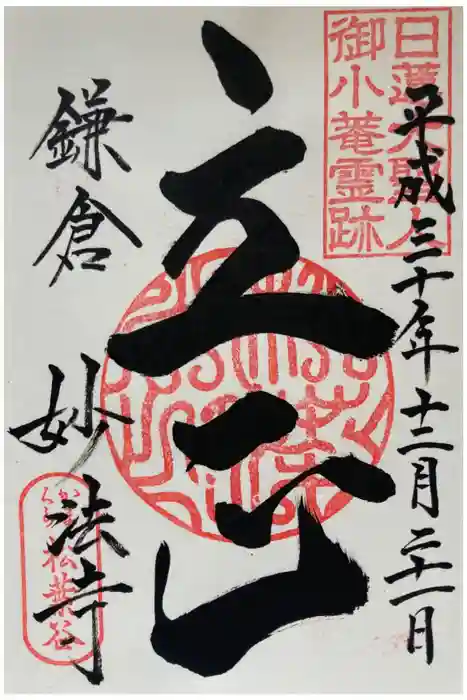 日蓮大聖人
御小菴霊跡
平成三十年十二月二十一日
立正
鎌倉
妙法寺
かまくら
松葉谷